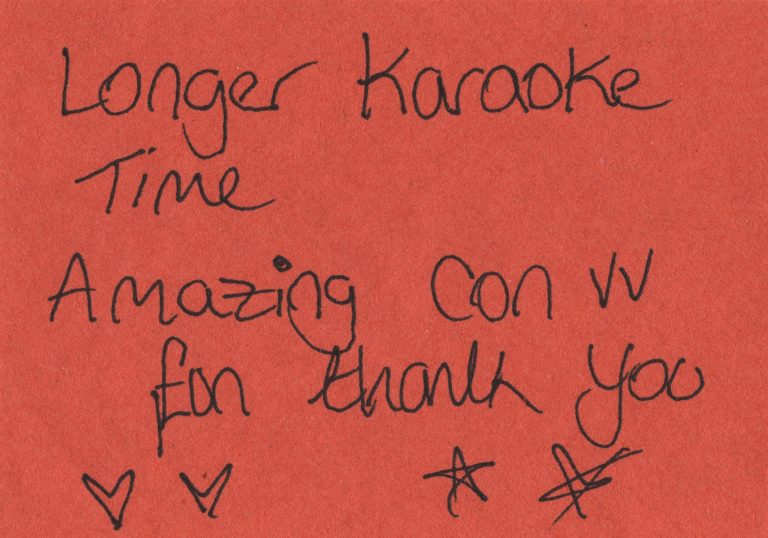 Longer Karaoke
Time
Amazing Con VV
fun thank you